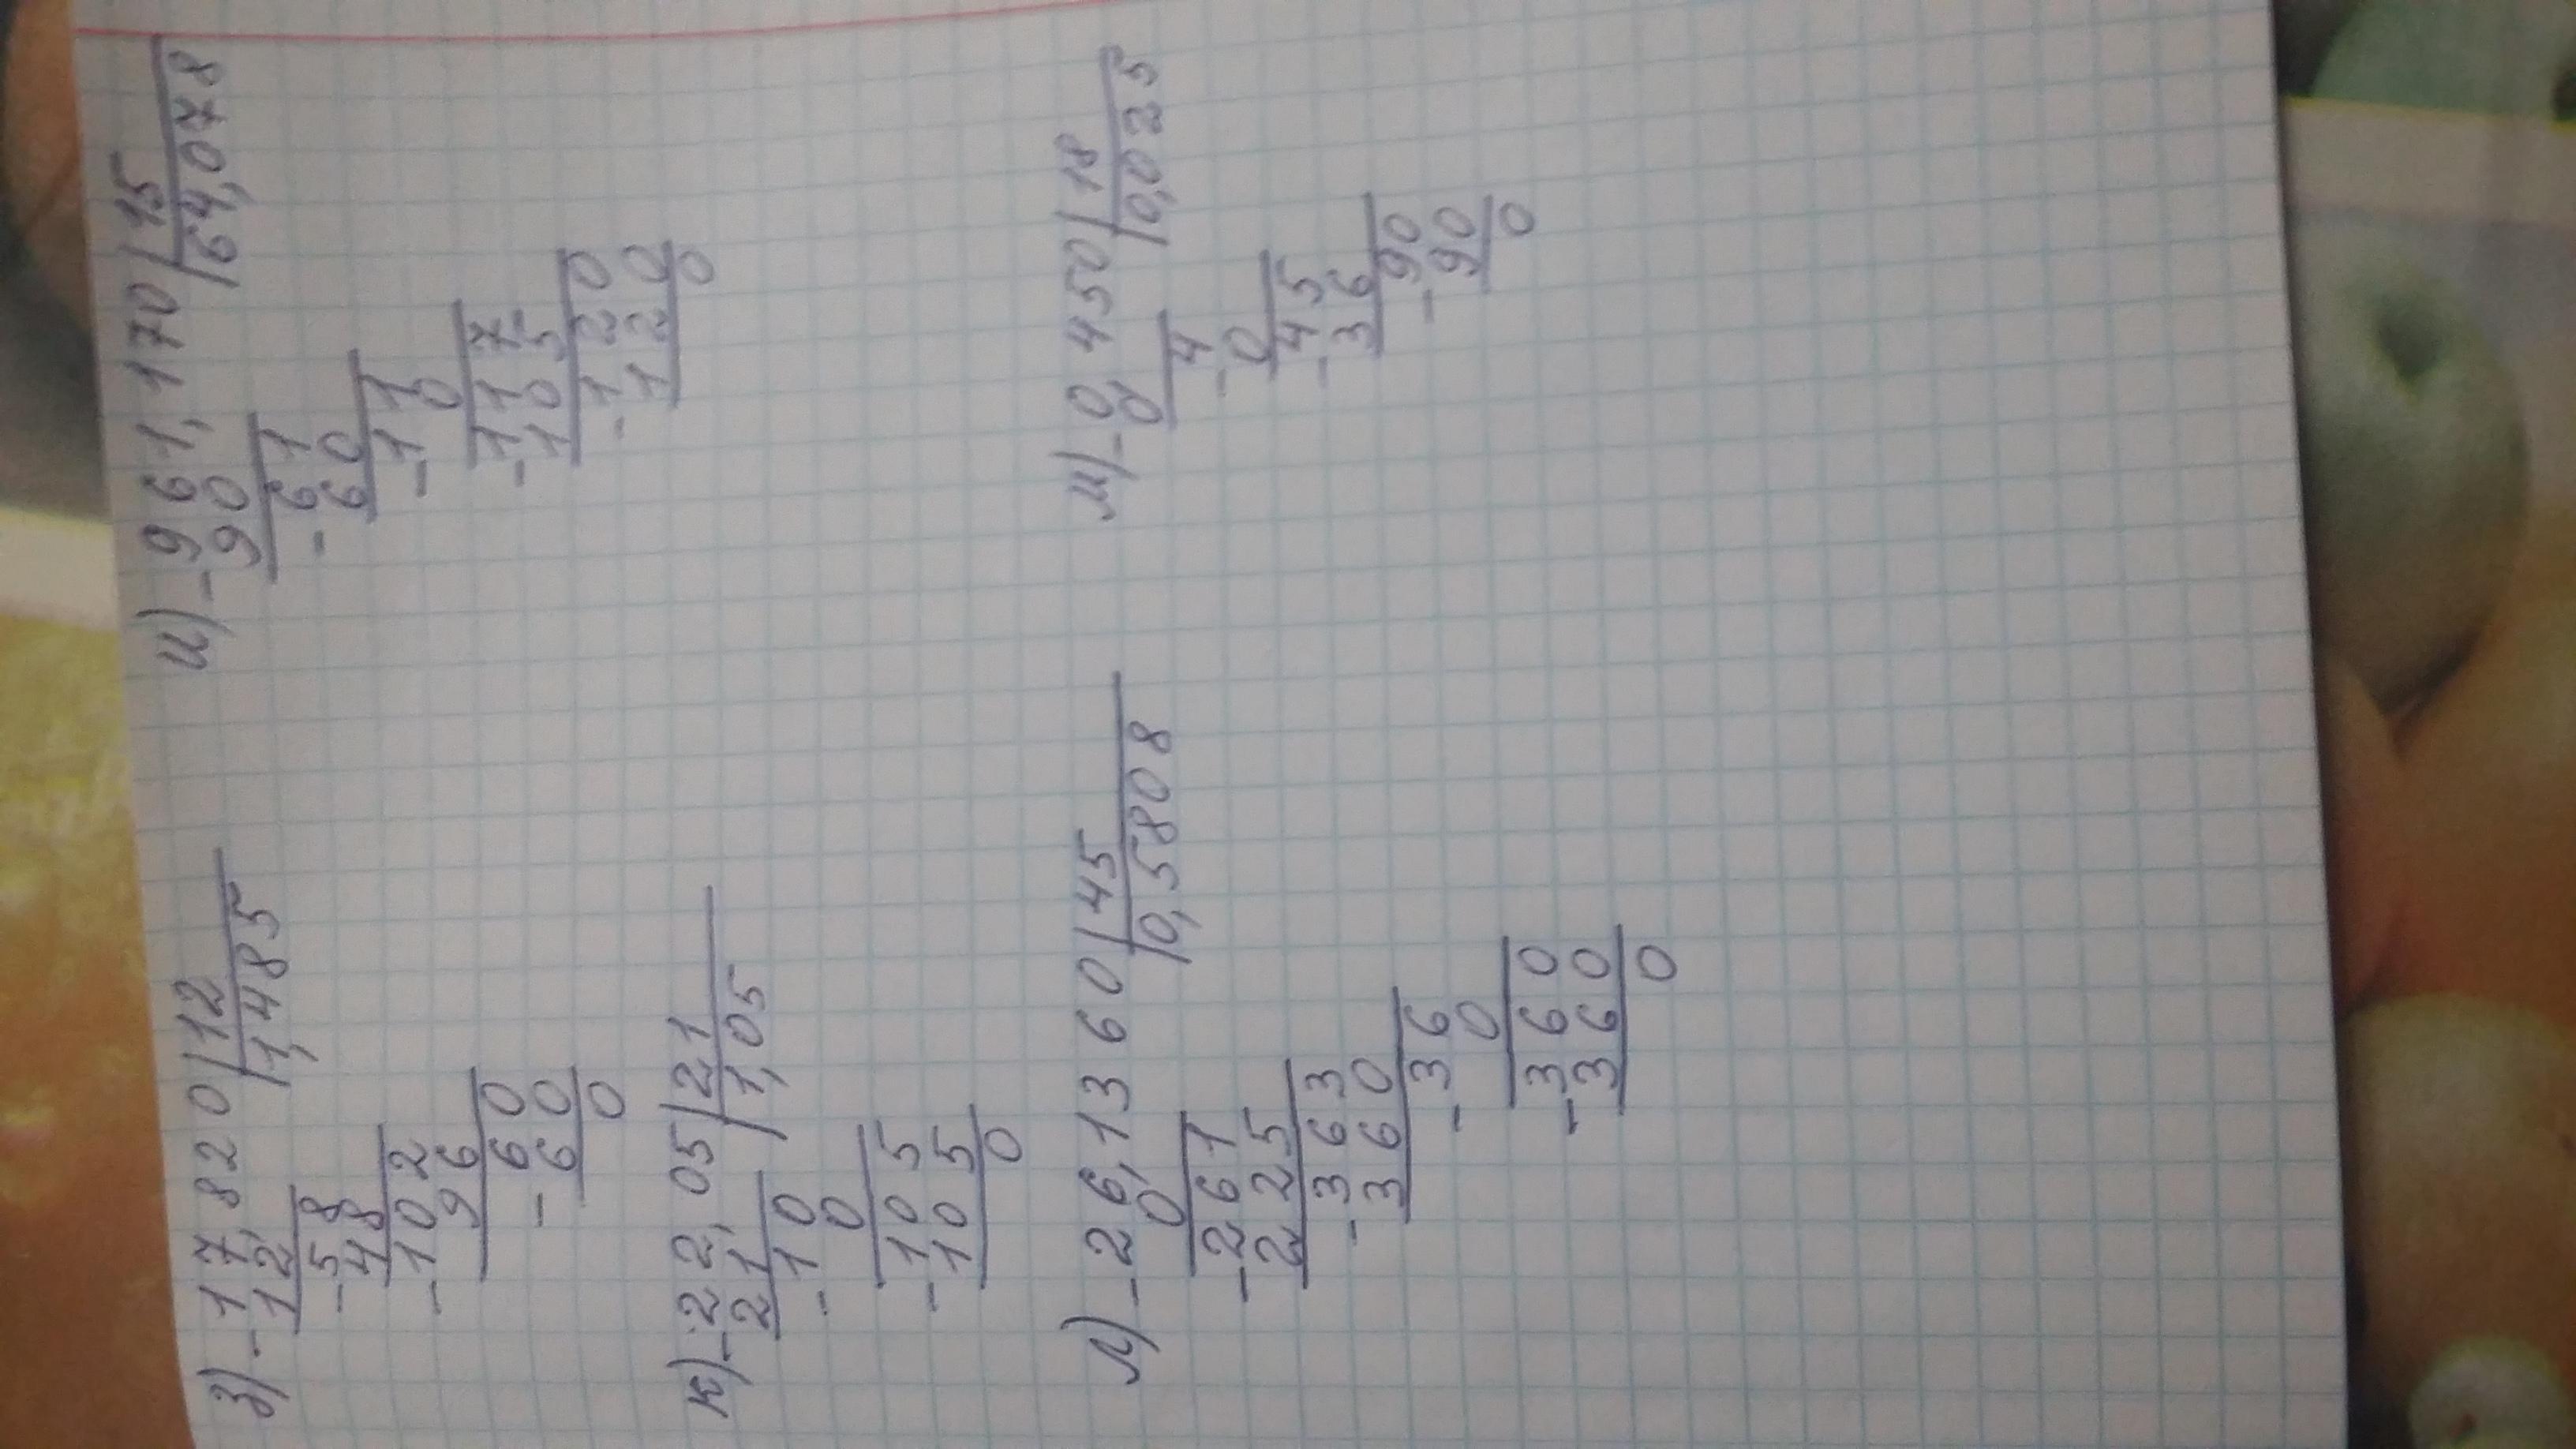 з) - 17,820 | 12
12 | 1,485
- 58
48
- 102
96
- 60
60
0
и) - 961,170 | 15
90 | 64,078
- 61
60
- 11
0
- 117
105
- 120
120
0
к) - 22,05 | 21
21 | 1,05
- 10
0
- 105
105
0
л) - 26,1360 | 45
0 | 0,5808
- 261
225
- 363
360
- 36
0
- 360
360
0
м) - 0,450 | 18
0 | 0,025
- 4
0
- 45
36
- 90
90
0